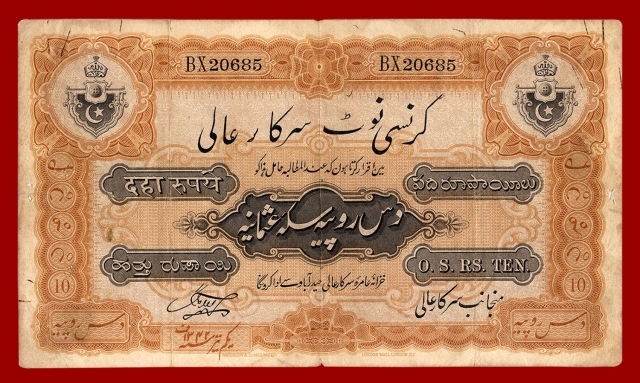 BX20685 BX20685
کرنسی نوٹ سرکار عالی
میں اقرار کرتا ہوں کہ عندالمطالبہ حامل ہذا کو
दहा रुपये పది రూపాయిలు
دس روپیہ سکہ عثمانیہ
ಹತ್ತು ರುಪಾಯಿ O. S. RS. TEN.
10 خزانہ عامرہ سرکار عالی حیدرآباد سے ادا کرونگا 10
منجانب سرکار عالی
دس روپیہ دس روپیہ